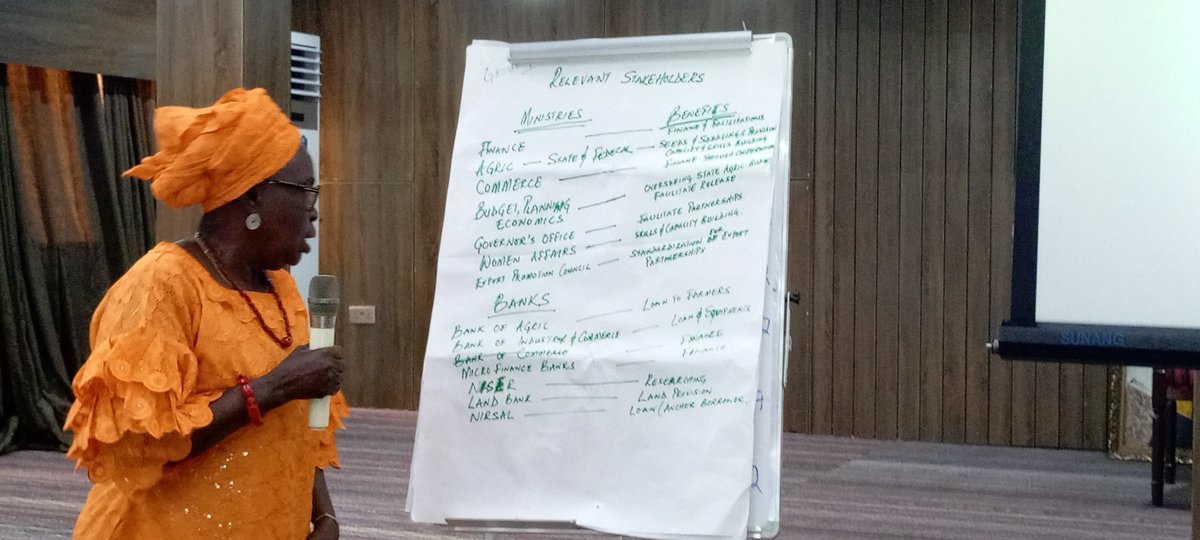 RELEVANT STAKEHOLDERS
MINISTRIES BENEFITS
FINANCE — FINANCE & FACILITATIONS
AGRIC — STATE & FEDERAL — SEEDS & SEEDLINGS PROVISION
CAPACITY & SKILLS BUILDING
COMMERCE — FINANCE THROUGH COOPERATION
BUDGET, PLANNING — OVERSEEING STATE AGRIC. BUDGET
ECONOMICS FACILITATE RELEASE
GOVERNOR'S OFFICE — FACILITATE PARTNERSHIPS
WOMEN AFFAIRS — SKILLS & CAPACITY BUILDING
EXPORT PROMOTION COUNCIL — STANDARDIZATION FOR EXPORT
PARTNERSHIPS
BANKS
BANK OF AGRIC — LOAN TO FARMERS
BANK OF INDUSTRY & COMMERCE — LOAN & EQUIPMENTS
BANK OF COMMERCE — FINANCE
MICRO FINANCE BANKS — FINANCE
NISER — RESEARCHING
LAND BANK — LAND PROVISION
NIRSAL — LOAN (ANCHER BORROWER
SUNANG